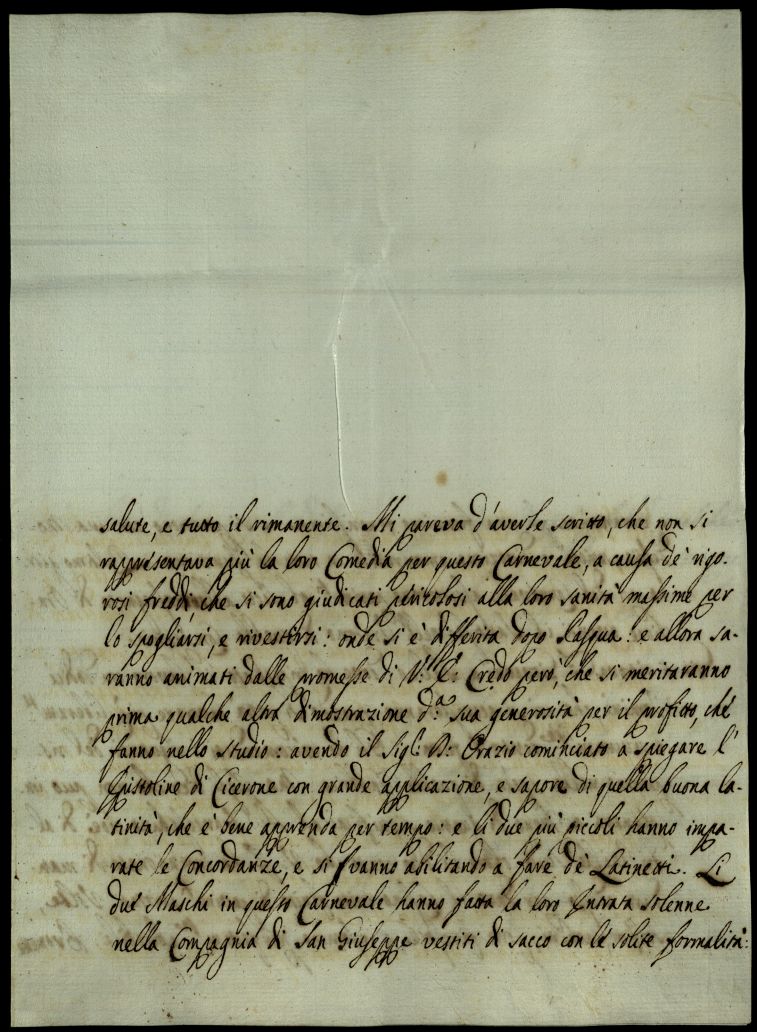 salute, e tutto il rimanente. Mi pareva d'averle scritto, che non si
rappresentava più la loro Comedia per questo Carnevale, a causa de' rigo-
rosi freddi, che si sono giudicati pericolosi alla loro sanità massime per
lo spogliarsi, e rivestirsi: onde si è differita dopo Pasqua: e allora sa-
ranno animati dalle promesse di V: E: Credo però, che si meritaranno
prima qualche altra dimostrazione d.a sua generosità per il profitto, che
fanno nello studio: avendo il Sig: D: Orazio cominciato a spiegare l'
Epistoline di Cicerone con grande applicazione, e sapore di quella buona la-
tinità, che è bene apprenda per tempo: e li due più piccoli hanno impa-
rate le Concordanze, e si vanno abilitando a fare de' Latinetti. Li
due Maschi in questo Carnevale hanno fatta la loro Intrata solenne
nella Compagnia di San Giuseppe vestiti di sacco con le solite formalità: